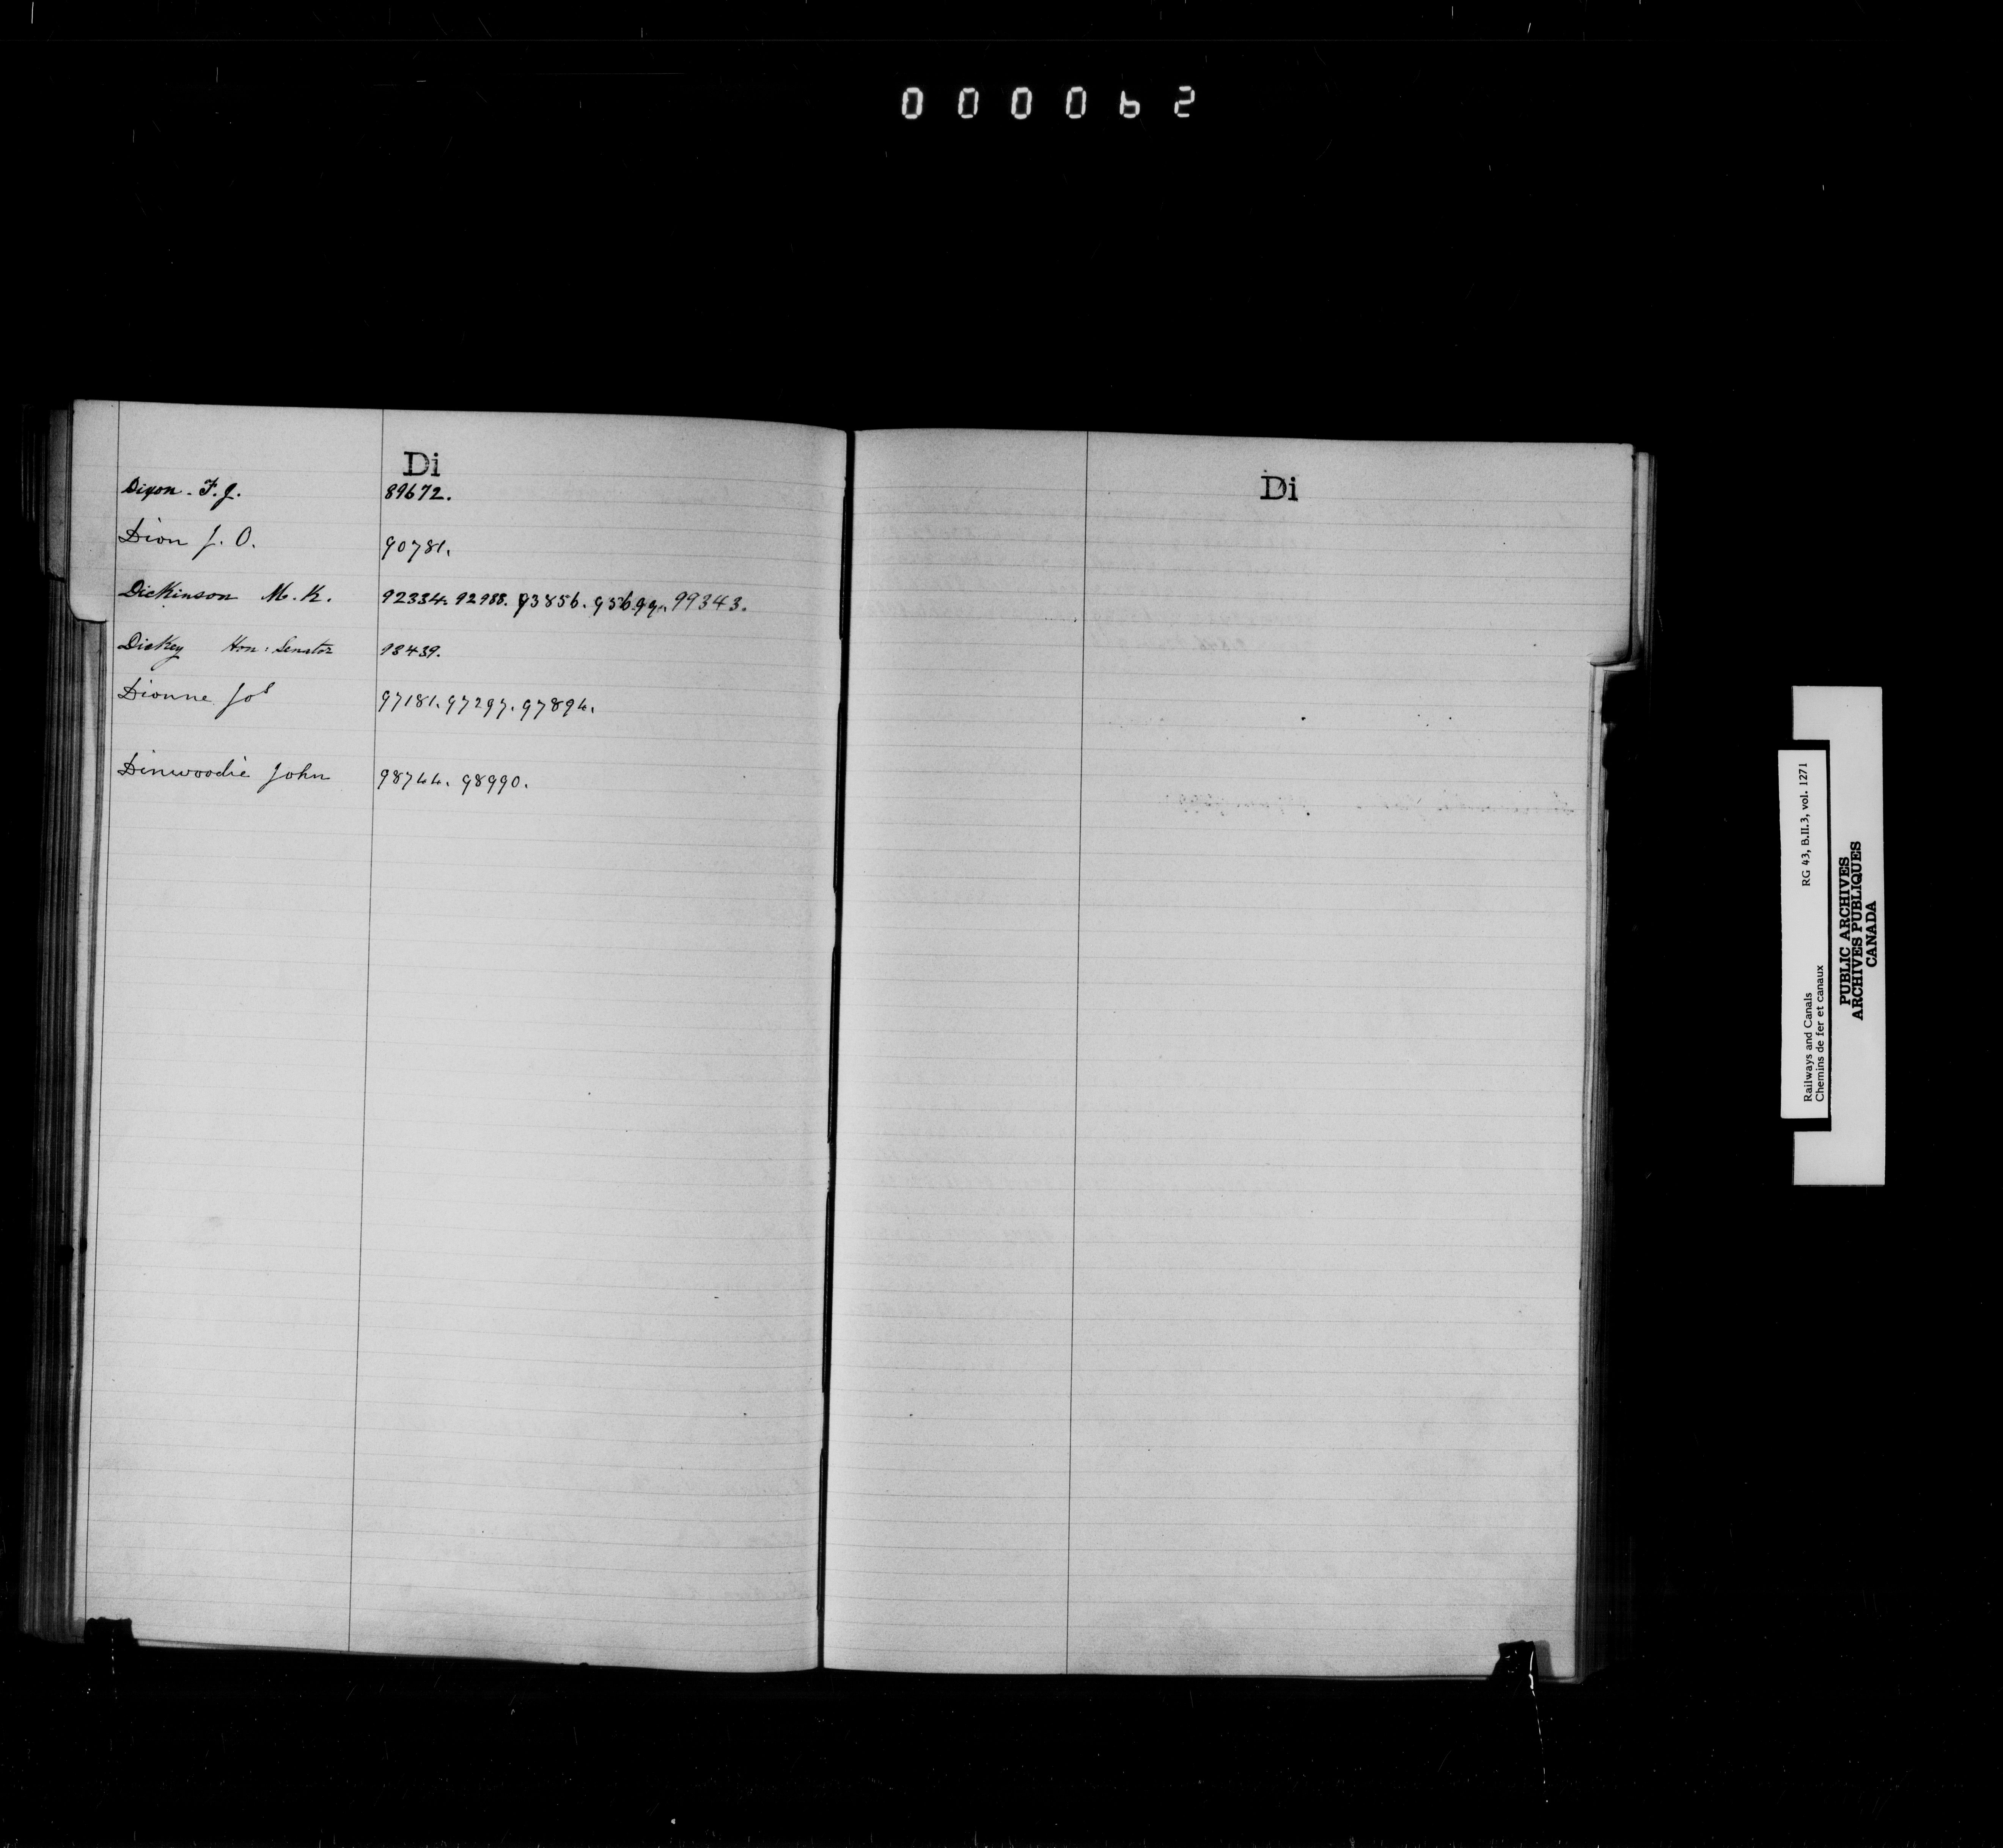 000062
Di
Dixon - F. J. 89672.
Dion J. O. 90781.
Dickinson M. K. 92334. 92988. 93856. 95699. 99343.
Dickey Hon: Senator 93439.
Dionne Jos 97181. 97297. 97894.
Dinwoodie John 98744. 98990.
Di
Railways and Canals RG 43, B.II.3, vol. 1271
Chemins de fer et canaux
PUBLIC ARCHIVES
ARCHIVES PUBLIQUES
CANADA